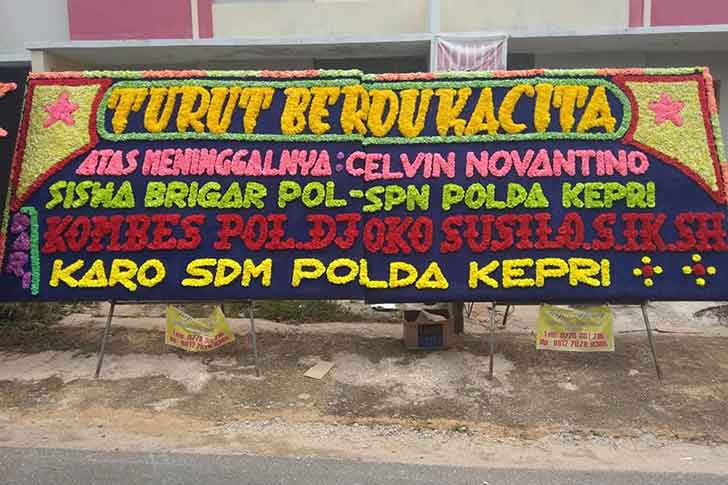 TURUT BERDUKACITA
ATAS MENINGGALNYA : CELVIN NOVANTINO
SISWA BRIGAR POL-SPN POLDA KEPRI
KOMBES POL.DJOKO SUSILO.S.IK.SH
KARO SDM POLDA KEPRI